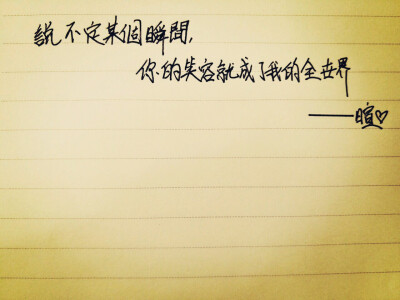 説不定某個瞬間,
你的笑容就成了我的全世界
——暄♡